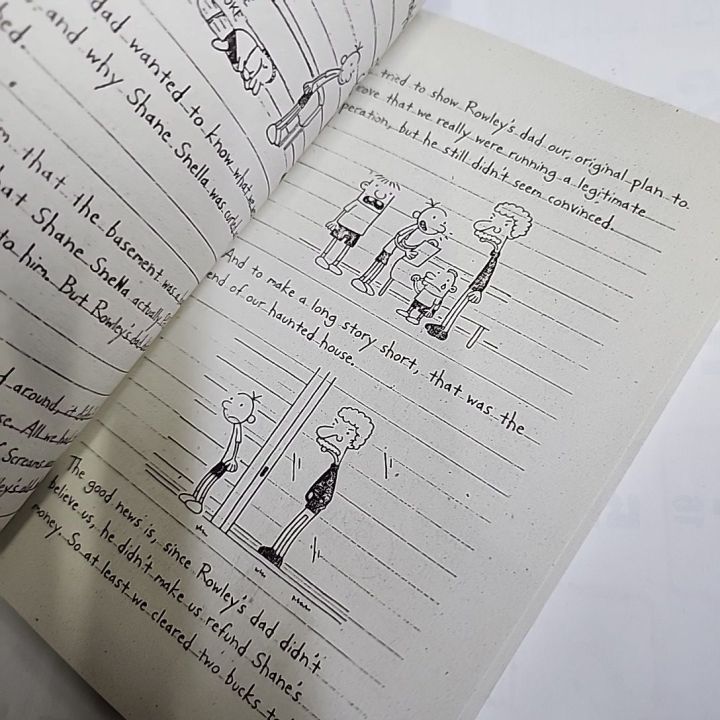 OKE
dad wanted to know what we
and why Shane Snella was curled
that the basement was a
hat Shane Snella actually
to him. But Rowley's dad
d around, it
se. All we had
f Screams
tried to show Rowley's dad our original plan to
rove that we really were running a legitimate
peration, but he still didn't seem convinced.
And to make a long story short, that was the
end of our haunted house.
The good news is, since Rowley's dad didn't
believe us, he didn't make us refund Shane's
money. So at least we cleared two bucks